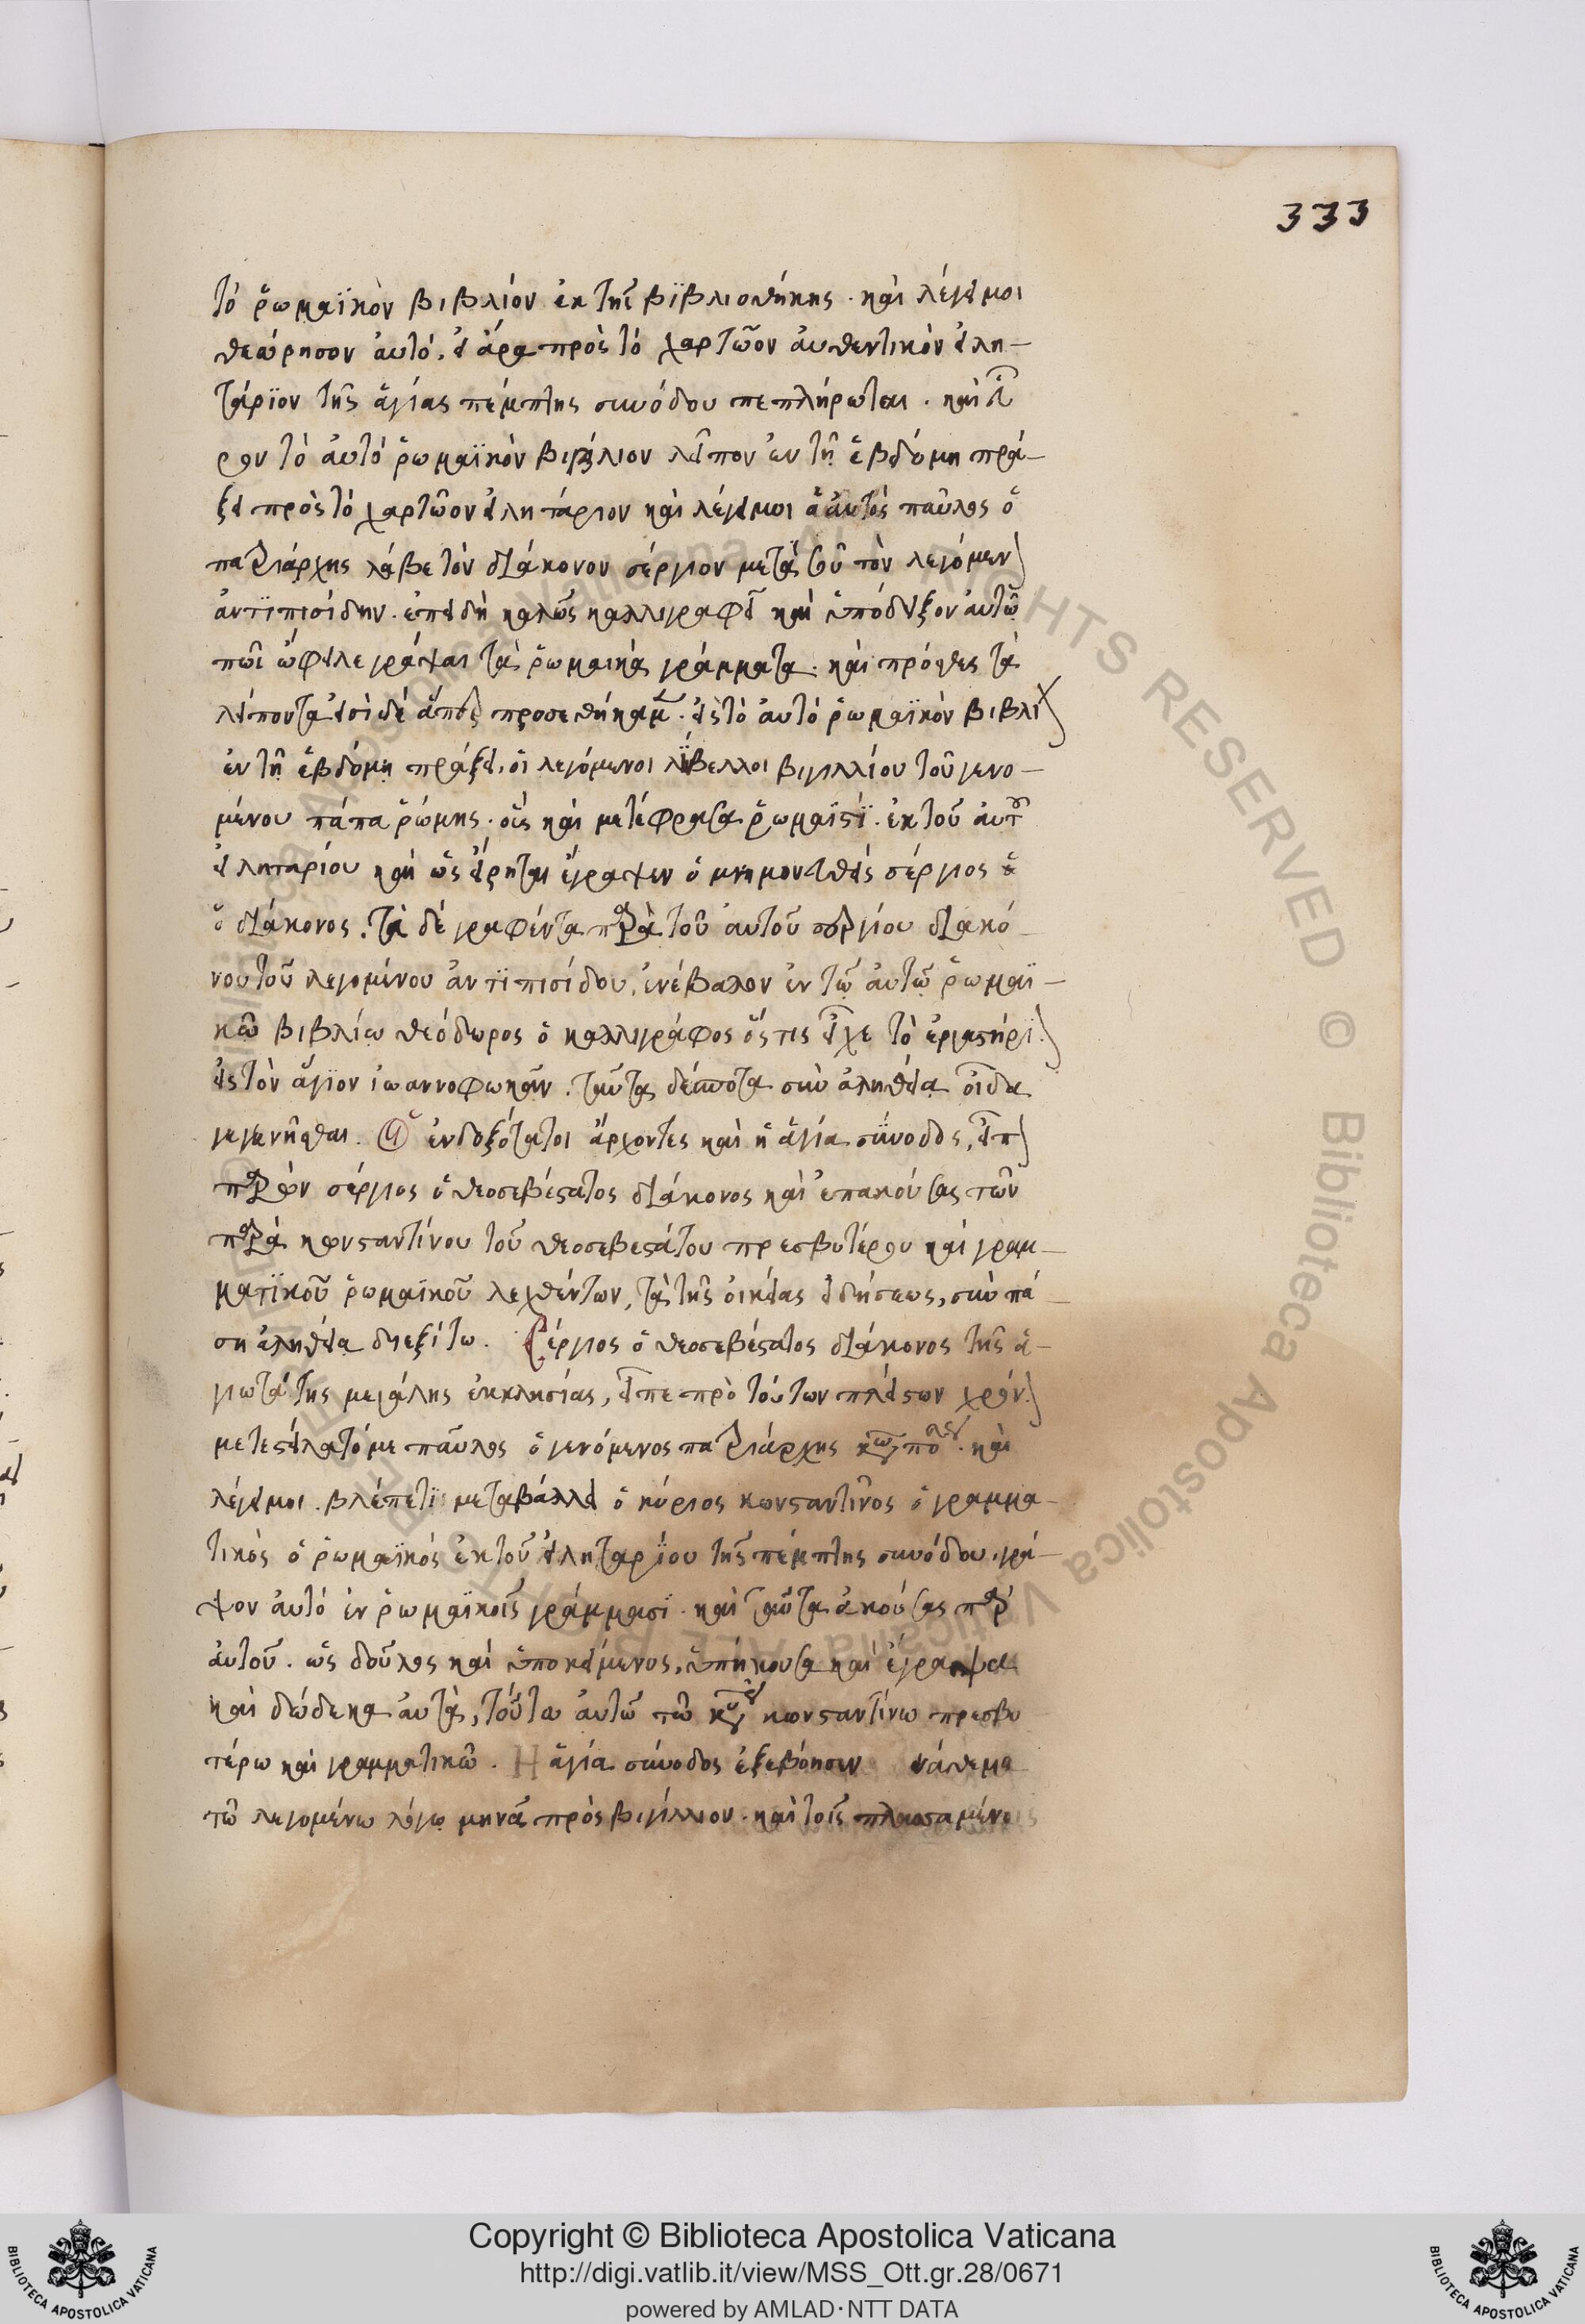 333
τὸ ῥωμαϊκὸν βιβλίον ἐκ τῆς βϊβλιοθήκης. καὶ λέγει μοι
θεώρησον αὐτό. εἰ ἄρα πρὸς τὸ χαρτῶον αὐθεντικὸν εἰλη-
τάρϊον τῆς ἁγίας πέμπτης συνόδου πεπλήρωται. καὶ εὗ
ρον τὸ αὐτὸ ῥωμαϊκὸν βιβλίον λεῖπον ἐν τῇ ἑβδόμη πρά-
ξει πρὸς τὸ χαρτῶον εἰλητάριον καὶ λέγει μοι ὁ αὐτὸς παῦλος ὁ
πατριάρχης λάβε τὸν διάκονον σέργιον μετὰ σοῦ τὸν λεγόμεν
ἀντϊπισίδην. ἐπειδὴ καλῶς καλλιγραφεῖ καὶ ὑπόδειξον αὐτῶ
πῶς ὤφειλε γράψαι τὰ ῥωμαικὰ γράμματα. καὶ πρόσθες τὰ
λείποντα εἰσὶ δὲ ἅπερ προσεθήκαμ. εἰς τὸ αὐτὸ ῥωμαϊκὸν βιβλι
ἐν τῇ ἑβδόμη πράξει, οἱ λεγόμενοι λίβελλοι βιγιλλίου τοῦ γενο-
μένου πάπα ῥώμης. οὓς καὶ μετέφρασα ῥωμαϊστί. ἐκ τοῦ αὐτοῦ
εἰληταρίου καὶ ὡς εἴρηται ἔγραψεν ὁ μνημονευθεὶς σέργιος
ὁ διάκονος. τὰ δὲ γραφέντα παρὰ τοῦ αὐτοῦ σεργίου διακό-
νου τοῦ λεγομένου ἀντϊπισίδου, ἐνέβαλον ἐν τῶ αὐτῶ ῥωμαϊ-
κῶ βιβλίω θεόδωρος ὁ καλλιγράφος ὅς τις εἶχε τὸ ἐργαστήρϊ
εἰς τὸν ἅγϊον ἰωαννοφωκᾶν. ταῦτα δέσποτα σὺν ἀληθεία οἶδα
γεγενῆσθαι. Οἱ ἐνδοξότατοι ἄρχοντες καὶ ἡ ἁγία σύνοδος, εἶπ
παρὼν σέργιος ὁ θεοσεβέστατος διάκονος καὶ ἐπακούσας τῶν
παρὰ κωνσταντίνου τοῦ θεοσεβεστάτου πρεσβυτέρου καὶ γραμ-
ματϊκοῦ ῥωμαϊκοῦ λεχθέντων, τὰ τῆς οἰκείας εἰδήσεως, σὺν πά-
ση ἀληθεία διεξίτω. Σέργιος ὁ θεοσεβέστατος διάκονος τῆς ἁ-
γιωτάτης μεγάλης ἐκκλησίας, εἶπε πρὸ τούτων πλείστων χρόν
μετεστείλατό με παῦλος ὁ γενόμενος πατριάρχης κωνπόλεως. καὶ
λέγει μοι. βλέπε τϊ μεταβάλλει ὁ κύριος κωνσταντῖνος ὁ γραμμα-
τικὸς ὁ ῥωμαϊκὸς ἐκ τοῦ εἰληταρϊου τῆς πέμπτης συνόδου, γρά-
ψον αὐτὸ ἐν ῥωμαϊκοῖς γράμμασϊ. καὶ ταῦτα ἀκούσας παρ
αὐτοῦ. ὡς δοῦλος καὶ ὑποκείμενος, ὑπήκουσα καὶ ἔγραψα
καὶ δέδωκα αὐτὰ, τούτω αὐτῶ τῶ κυρίω κωνσταντίνω πρεσβυ
τέρω καὶ γραμματικῶ. Η ἁγία σύνοδος ἐξεβόησεν νάθεμα
τῶ λεγομένω λόγω μηνᾶ πρὸς βιγίλλιον. καὶ τοῖς πλασαμένοις
Copyright © Biblioteca Apostolica Vaticana
http://digi.vatlib.it/view/MSS_Ott.gr.28/0671
powered by AMLAD·NTT DATA